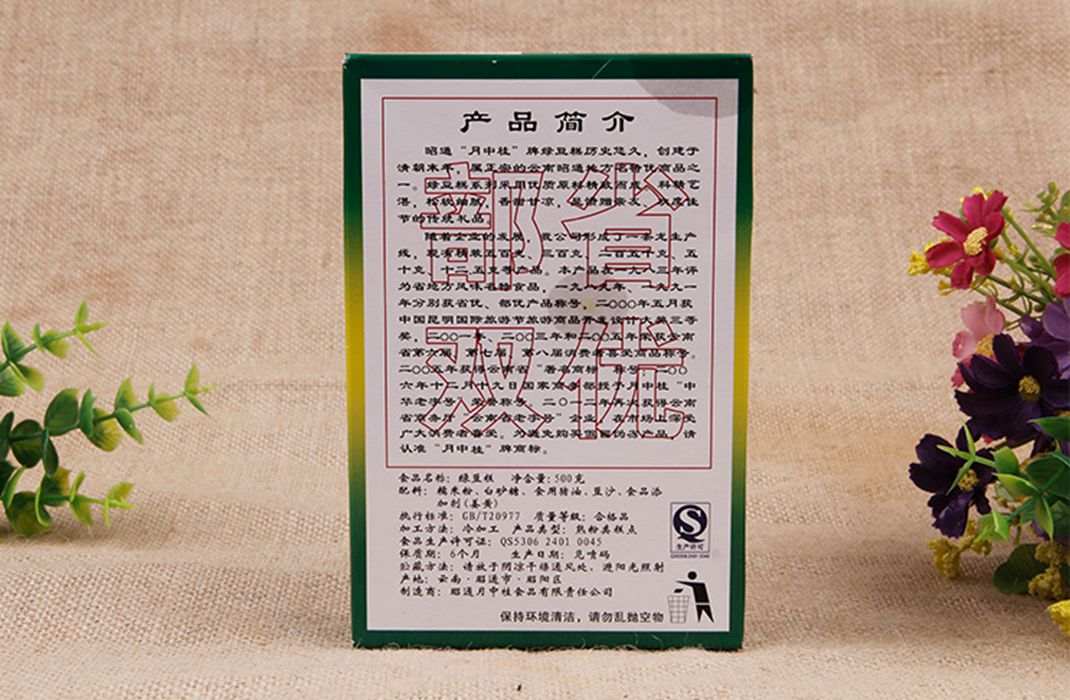 产品简介
昭通“月中桂”牌绿豆糕历史悠久，创建于
清朝末年，属正宗的云南昭通地方名特优商品之
一。绿豆糕系列采用优质原料精致而成，科精艺
湛，松软细腻，香甜甘凉，是馈赠亲友、欢度佳
节的传统礼品。
随着企业的发展，我公司形成了一条龙生产
线，现有精装五百克、三百克、二百五十克、五
十克、十二.五克等产品。本产品在一九八三年评
为省地方风味名特食品，一九八九年、一九九一
年分别获省优、部优产品称号，二〇〇〇年五月获
中国昆明国际旅游节旅游商品开发设计大奖三等
奖，二〇〇一年、二〇〇三年和二〇〇五年荣获云南
省第六届、第七届、第八届消费者喜爱商品称号。
二〇〇五年获得云南省“著名商标”称号；二〇〇
六年十二月十九日国家商务部授予月中桂“中
华老字号”荣誉称号，二〇一二年再次获得云南
省商务厅“云南省老字号”企业，在市场上深受
广大消费者喜爱。为避免购买假冒伪劣产品，请
认准“月中桂”牌商标。
部省
双优
食品名称：绿豆糕 净含量：500克
配料：糯米粉、白砂糖、食用猪油、豆沙、食品添
加剂(姜黄)
执行标准：GB/T20977 质量等级：合格品
加工方法：冷加工 产品类型：熟粉类糕点
食品生产许可证：QS5306 2401 0045
保质期：6个月 生产日期：见喷码
贮藏方法：请放于阴凉干燥通风处、避阳光照射
产地：云南·昭通市·昭阳区
制造商：昭通月中桂食品有限责任公司
QS
生产许可
QS5306 2401 0045
保持环境清洁，请勿乱抛空物